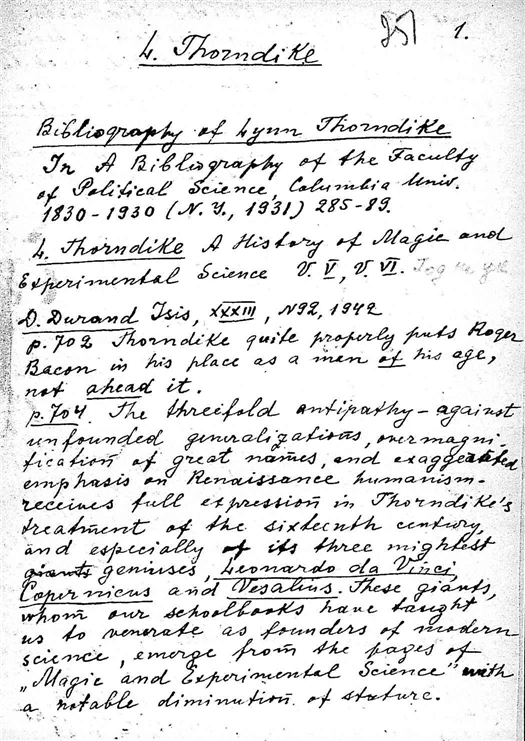 1.
L. Thorndike
Bibliography of Lynn Thorndike
In A Bibliography of the Faculty
of Political Science, Columbia Univ.
1830-1930 (N.Y., 1931) 285-89.
L. Thorndike A History of Magic and
Experimental Science V. V, V. VI.
D. Durand Isis, XXXIII, N92, 1942
p. 702 Thorndike quite properly puts Roger
Bacon in his place as a man of his age,
not ahead it.
p. 704. The threefold antipathy - against
unfounded generalizations, overmagni-
fication of great names, and exaggerated
emphasis on Renaissance humanism -
receives full expression in Thorndike's
treatment of the sixteenth century,
and especially of its three mightest
giants geniuses, Leonardo da Vinci,
Copernicus and Vesalius. These giants,
whom our schoolbooks have taught
us to venerate as founders of modern
science, emerge from the pages of
„Magic and Experimental Science" with
a notable diminution of stature.